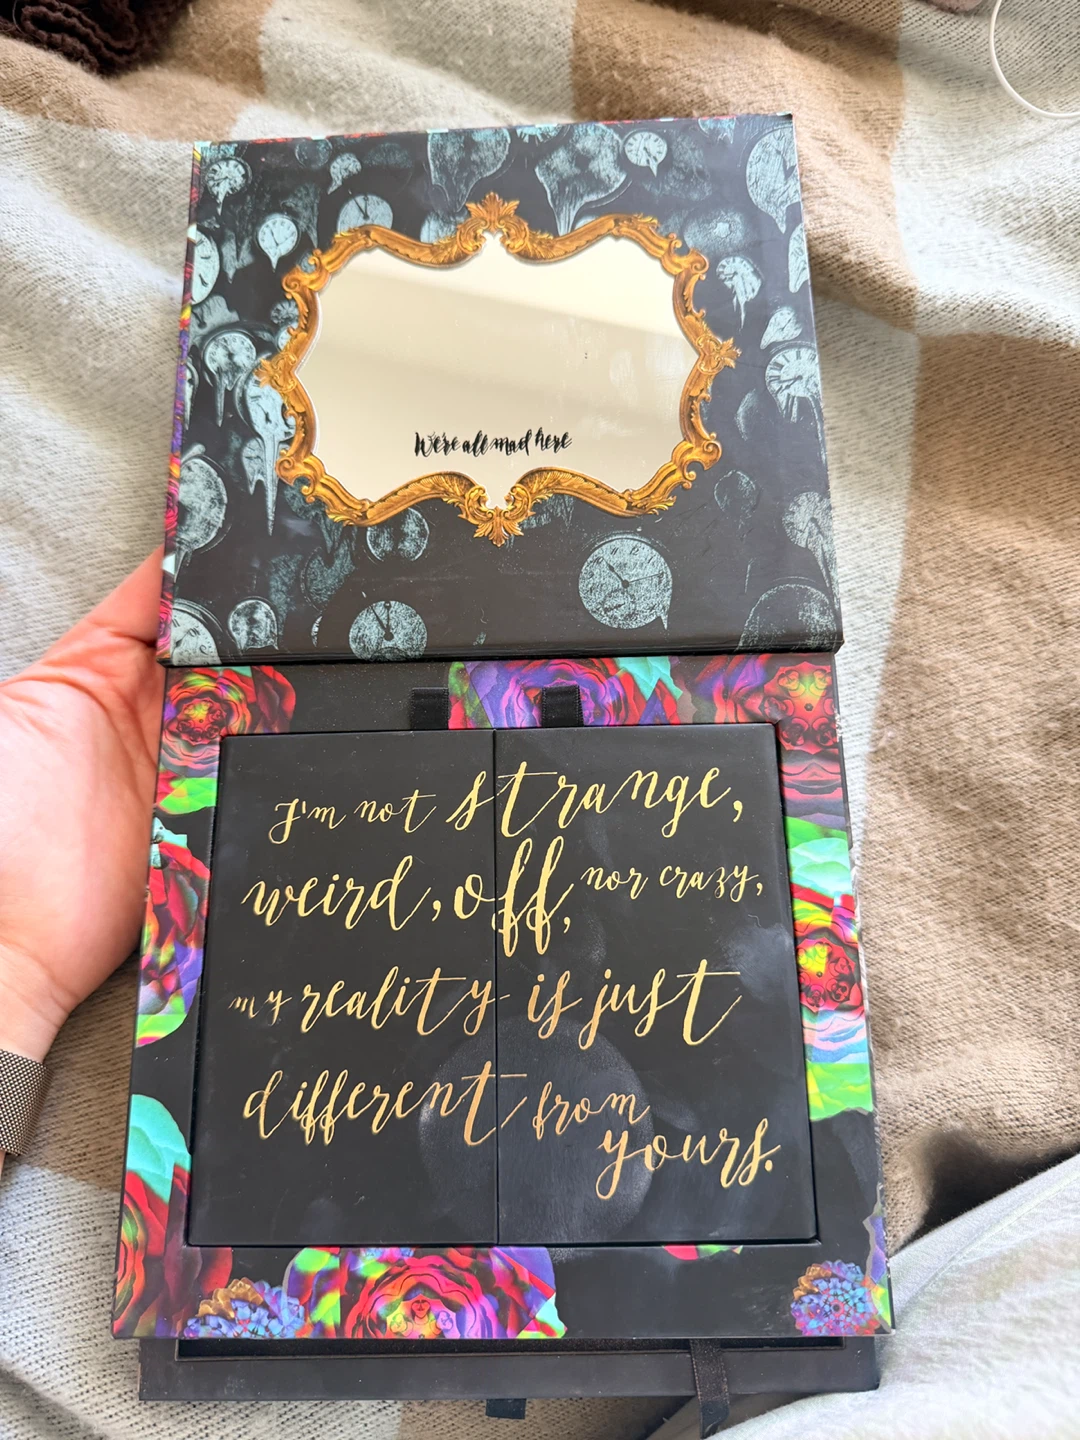 We're all mad here
I'm not strange,
weird, off, nor crazy,
my reality is just
different from
yours.